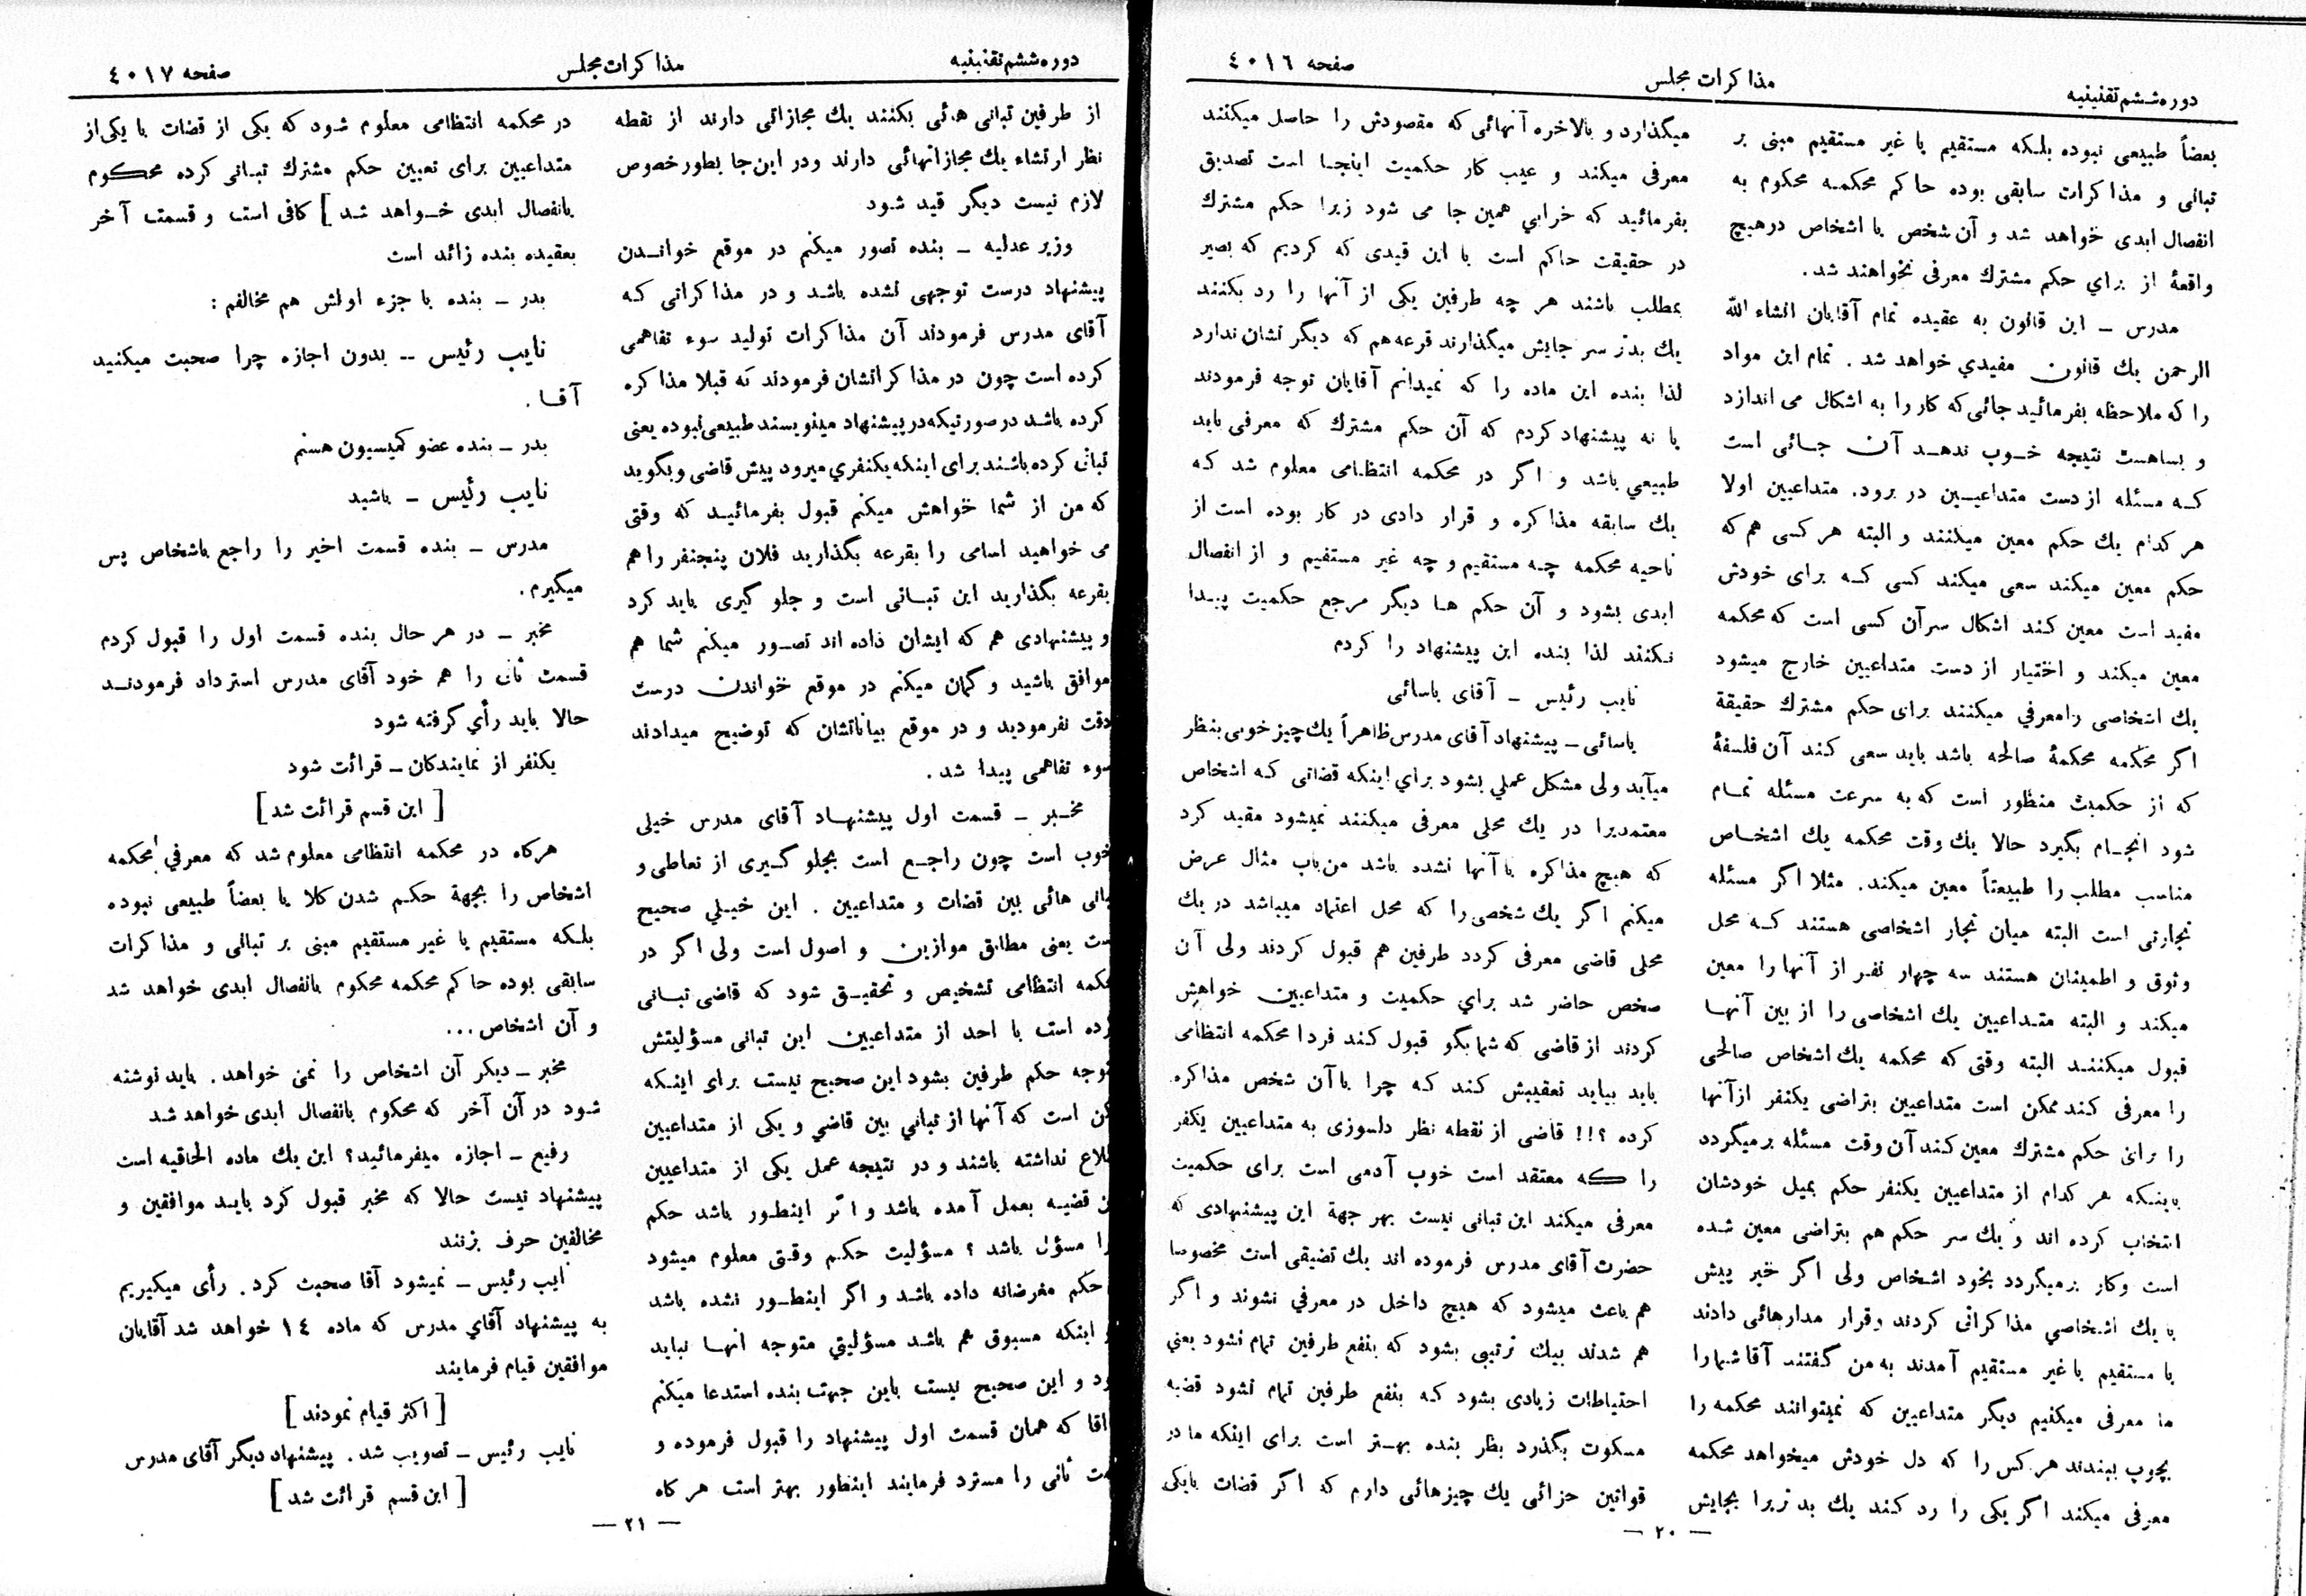 دوره ششم تقنینیه
مذاکرات مجلس
صفحه ٤٠١٦
بعضاً طبیعی نبوده بلکه مستقیم یا غیر مستقیم مبنی بر
تبانی و مذاکرات سابقی بوده حاکم محکمه محکوم به
انفصال ابدی خواهد شد و آن شخص یا اشخاص در هیچ
واقعهٔ از برای حکم مشترك معرفی نخواهند شد.
مدرس ـ این قانون به عقیده تمام آقایان انشاء الله
الرحمن یك قانون مفیدی خواهد شد. تمام این مواد
را که ملاحظه بفرمائید جائی که کار را به اشکال می اندازد
و بساهست نتیجه خوب ندهد آن جائی است
که مسئله از دست متداعیین در برود. متداعیین اولا
هر کدام یك حکم معین میکنند و البته هر کسی هم که
حکم معین میکند سعی میکند کسی که برای خودش
مفید است معین کند اشکال سر آن کسی است که محکمه
معین میکند و اختیار از دست متداعیین خارج میشود
یك اشخاصی را معرفی میکنند برای حکم مشترك حقیقة
اگر محکمه محکمهٔ صالحه باشد باید سعی کند آن فلسفهٔ
که از حکمیت منظور است که به سرعت مسئله تمام
شود انجام بگیرد حالا یك وقت محکمه یك اشخاص
مناسب مطلب را طبیعتاً معین میکند. مثلا اگر مسئله
تجارتی است البته میان تجار اشخاصی هستند که محل
وثوق و اطمینان هستند سه چهار نفر از آنها را معین
میکند و البته متداعیین یك اشخاصی را از بین آنها
قبول میکنند البته وقتی که محکمه یك اشخاص صالحی
را معرفی کند ممکن است متداعیین بتراضی یکنفر از آنها
را برای حکم مشترك معین کند آن وقت مسئله بر میگردد
باینکه هر کدام از متداعیین یکنفر حکم بمیل خودشان
انتخاب کرده اند و یك سر حکم هم بتراضی معین شده
است و کار بر میگردد بخود اشخاص ولی اگر خیر پیش
با یك اشخاصی مذاکراتی کردند و قرار مدارهائی دادند
یا مستقیم یا غیر مستقیم آمدند به من گفتند آقا شما را
ما معرفی میکنیم دیگر متداعیین که نمیتوانند محکمه را
بچوب ببندند هر کس را که دل خودش میخواهد محکمه
معرفی میکند اگر یکی را رد کند یك بد تر را بجایش
میگذارد و بالاخره آنهائی که مقصودش را حاصل میکنند
معرفی میکند و عیب کار حکمیت اینجا است تصدیق
بفرمائید که خرابی همین جا می شود زیرا حکم مشترك
در حقیقت حاکم است با این قیدی که کردیم که بصیر
بمطلب باشند هر چه طرفین یکی از آنها را رد بکنند
یك بدتر سر جایش میگذارند قرعه هم که دیگر نشان ندارد
لذا بنده این ماده را که نمیدانم آقایان توجه فرمودند
یا نه پیشنهاد کردم که آن حکم مشترك که معرفی باید
طبیعی باشد و اگر در محکمه انتظامی معلوم شد که
یك سابقه مذاکره و قرار دادی در کار بوده است از
ناحیه محکمه چه مستقیم و چه غیر مستقیم و از انفصال
ابدی بشود و آن حکم ها دیگر مرجع حکمیت پیدا
نکنند لذا بنده این پیشنهاد را کردم
نایب رئیس ـ آقای یاسائی
یاسائی ـ پیشنهاد آقای مدرس ظاهراً یك چیز خوبی بنظر
میآید ولی مشکل عملی بشود برای اینکه قضاتی که اشخاص
معتمدیرا در یك محلی معرفی میکنند نمیشود مقید کرد
که هیچ مذاکره با آنها نشده باشد من باب مثال عرض
میکنم اگر یك شخصی را که محل اعتماد میباشد در یك
محلی قاضی معرفی کردد طرفین هم قبول کردند ولی آن
صخص حاضر شد برای حکمیت و متداعیین خواهش
کردند از قاضی که شما بگو قبول کند فردا محکمه انتظامی
باید بیاید تعقیبش کند که چرا با آن شخص مذاکره
کرده ؟!! قاضی از نقطه نظر دلسوزی به متداعیین یکفر
را که معتقد است خوب آدمی است برای حکمیت
معرفی میکند این تبانی نیست بهر جهة این پیشنهادی که
حضرت آقای مدرس فرموده اند یك تضیقی است مخصوصا
هم باعث میشود که هیچ داخل در معرفی نشوند و اگر
هم شدند بیك ترتیبی بشود که بنفع طرفین تمام نشود یعنی
احتیاطات زیادی بشود که بنفع طرفین تمام نشود قضیه
مسکوت بگذرد بظر بنده بهتر است برای اینکه ما در
قوانین جزائی یك چیزهائی دارم که اگر قضات بایکی
— ٢٠ —
دوره ششم تقنینیه
مذاکرات مجلس
صفحه ٤٠١٧
از طرفین تبانی هائی بکنند یك مجازاتی دارند از نقطه
نظر ارتشاء یك مجازاتهائی دارند و در این جا بطور خصوص
لازم نیست دیگر قید شود
وزیر عدلیه ـ بنده تصور میکنم در موقع خواندن
پیشنهاد درست توجهی نشده باشد و در مذاکراتی که
آقای مدرس فرمودند آن مذاکرات تولید سوء تفاهمی
کرده است چون در مذاکراتشان فرمودند که قبلا مذاکره
کرده باشد در صورتیکه در پیشنهاد مینویسند طبیعی نبوده یعنی
تبانی کرده باشند برای اینکه یکنفری میرود پیش قاضی و بگوید
که من از شما خواهش میکنم قبول بفرمائید که وقتی
می خواهید اسامی را بقرعه بگذارید فلان پنجنفر را هم
بقرعه بگذارید این تبانی است و جلو گیری باید کرد
و پیشنهادی هم که ایشان داده اند تصور میکنم شما هم
موافق باشید و گمان میکنم در موقع خواندن درست
دقت نفرمودید و در موقع بیاناتشان که توضیح میدادند
سوء تفاهمی پیدا شد.
مخبر ـ قسمت اول پیشنهاد آقای مدرس خیلی
خوب است چون راجع است بجلو گیری از تعاطی و
بانی هائی بین قضات و متداعیین. این خیلی صحیح
ست یعنی مطابق موازین و اصول است ولی اگر در
حکمه انتظامی تشخیص و تحقیق شود که قاضی تبانی
رده است با احد از متداعیین این تبانی مسؤلیتش
توجه حکم طرفین بشود این صحیح نیست برای اینکه
کن است که آنها از تبانی بین قاضی و یکی از متداعیین
طلاع نداشته باشند و در نتیجه عمل یکی از متداعیین
ن قضیه بعمل آمده باشد و اگر اینطور باشد حکم
را مسؤل باشد ؟ مسؤلیت حکم وقتی معلوم میشود
حکم مغرضانه داده باشد و اگر اینطور نشده باشد
اینکه مسبوق هم باشد مسؤلیتی متوجه انها نباید
ود و این صحیح نیست باین جهت بنده استدعا میکنم
آقا که همان قسمت اول پیشنهاد را قبول فرموده و
مت ثانی را مسترد فرمایند اینطور بهتر است هر گاه
در محکمه انتظامی معلوم شود که یکی از قضات با یکی از
متداعیین برای تعیین حکم مشترك تبانی کرده محکوم
بانفصال ابدی خواهد شد] کافی است و قسمت آخر
بعقیده بنده زائد است
بدر ـ بنده با جزء اولش هم مخالفم :
نایب رئیس ـ بدون اجازه چرا صحبت میکنید
آقا.
بدر ـ بنده عضو کمیسیون هستم
نایب رئیس ـ باشید
مدرس ـ بنده قسمت اخیر را راجع باشخاص پس
میگیرم.
مخبر ـ در هر حال بنده قسمت اول را قبول کردم
قسمت ثانی را هم خود آقای مدرس استرداد فرمودند
حالا باید رأی گرفته شود
یکنفر از نمایندکان ـ قرائت شود
[این قسم قرائت شد]
هرکاه در محکمه انتظامی معلوم شد که معرفی محکمه
اشخاص را بجهة حکم شدن کلا یا بعضاً طبیعی نبوده
بلکه مستقیم یا غیر مستقیم مبنی بر تبانی و مذاکرات
سابقی بوده حاکم محکمه محکوم بانفصال ابدی خواهد شد
و آن اشخاص...
مخبر ـ دیکر آن اشخاص را نمی خواهد. باید نوشته
شود در آن آخر که محکوم بانفصال ابدی خواهد شد
رفیع ـ اجازه میفرمائید؟ این یك ماده الحاقیه است
پیشنهاد نیست حالا که مخبر قبول کرد باید موافقین و
مخالفین حرف بزنند
نایب رئیس ـ نمیشود آقا صحبت کرد. رأی میکیریم
به پیشنهاد آقای مدرس که ماده ١٤ خواهد شد آقایان
موافقین قیام فرمایند
[اکثر قیام نمودند]
نایب رئیس ـ تصویب شد. پیشنهاد دیگر آقای مدرس
[این قسم قرائت شد]
— ٢١ —